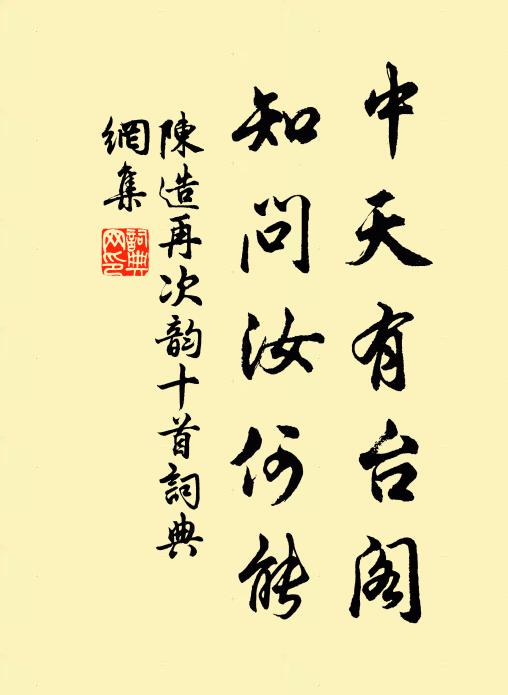 中天有台阁
知问汝何能
陳造再次韵十首詞典
網集
詞典
网印